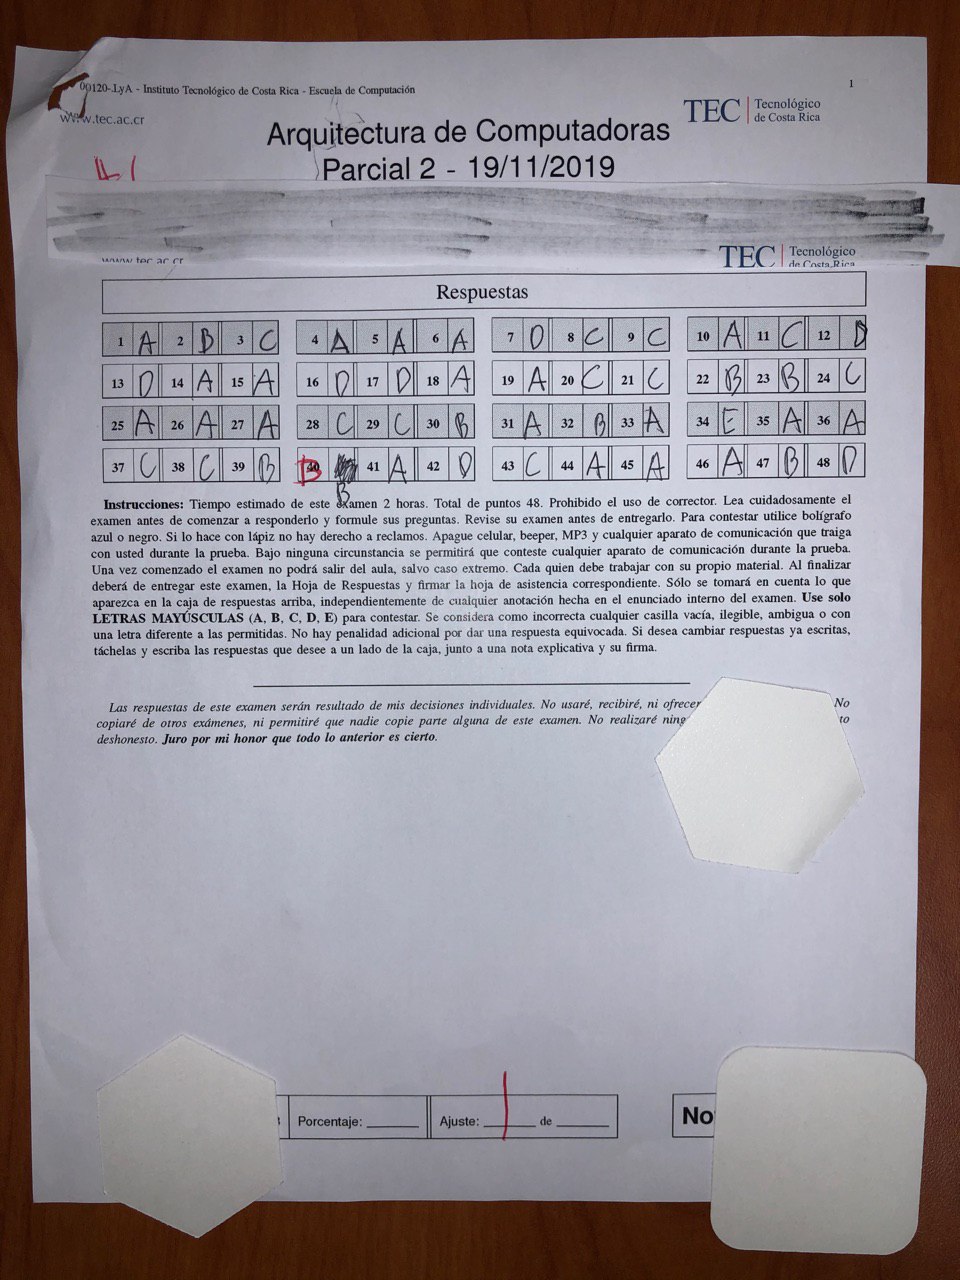 00120-.LyA - Instituto Tecnológico de Costa Rica - Escuela de Computación
1
www.tec.ac.cr
TEC | Tecnológico de Costa Rica
Arquitectura de Computadoras
Parcial 2 - 19/11/2019
www.tec.ac.cr
TEC | Tecnológico de Costa Rica
Respuestas
1 A 2 B 3 C 4 A 5 A 6 A 7 D 8 C 9 C 10 A 11 C 12 D
13 D 14 A 15 A 16 D 17 D 18 A 19 A 20 C 21 C 22 B 23 B 24 C
25 A 26 A 27 A 28 C 29 C 30 B 31 A 32 B 33 A 34 E 35 A 36 A
37 C 38 C 39 B 40 B 41 A 42 D 43 C 44 A 45 A 46 A 47 B 48 D
B
Instrucciones: Tiempo estimado de este examen 2 horas. Total de puntos 48. Prohibido el uso de corrector. Lea cuidadosamente el
examen antes de comenzar a responderlo y formule sus preguntas. Revise su examen antes de entregarlo. Para contestar utilice bolígrafo
azul o negro. Si lo hace con lápiz no hay derecho a reclamos. Apague celular, beeper, MP3 y cualquier aparato de comunicación que traiga
con usted durante la prueba. Bajo ninguna circunstancia se permitirá que conteste cualquier aparato de comunicación durante la prueba.
Una vez comenzado el examen no podrá salir del aula, salvo caso extremo. Cada quien debe trabajar con su propio material. Al finalizar
deberá de entregar este examen, la Hoja de Respuestas y firmar la hoja de asistencia correspondiente. Sólo se tomará en cuenta lo que
aparezca en la caja de respuestas arriba, independientemente de cualquier anotación hecha en el enunciado interno del examen. Use solo
LETRAS MAYÚSCULAS (A, B, C, D, E) para contestar. Se considera como incorrecta cualquier casilla vacía, ilegible, ambigua o con
una letra diferente a las permitidas. No hay penalidad adicional por dar una respuesta equivocada. Si desea cambiar respuestas ya escritas,
táchelas y escriba las respuestas que desee a un lado de la caja, junto a una nota explicativa y su firma.
Las respuestas de este examen serán resultado de mis decisiones individuales. No usaré, recibiré, ni ofrecer No
copiaré de otros exámenes, ni permitiré que nadie copie parte alguna de este examen. No realizaré ning to
deshonesto. Juro por mi honor que todo lo anterior es cierto.
Porcentaje: ______ Ajuste: ______ de ______ No